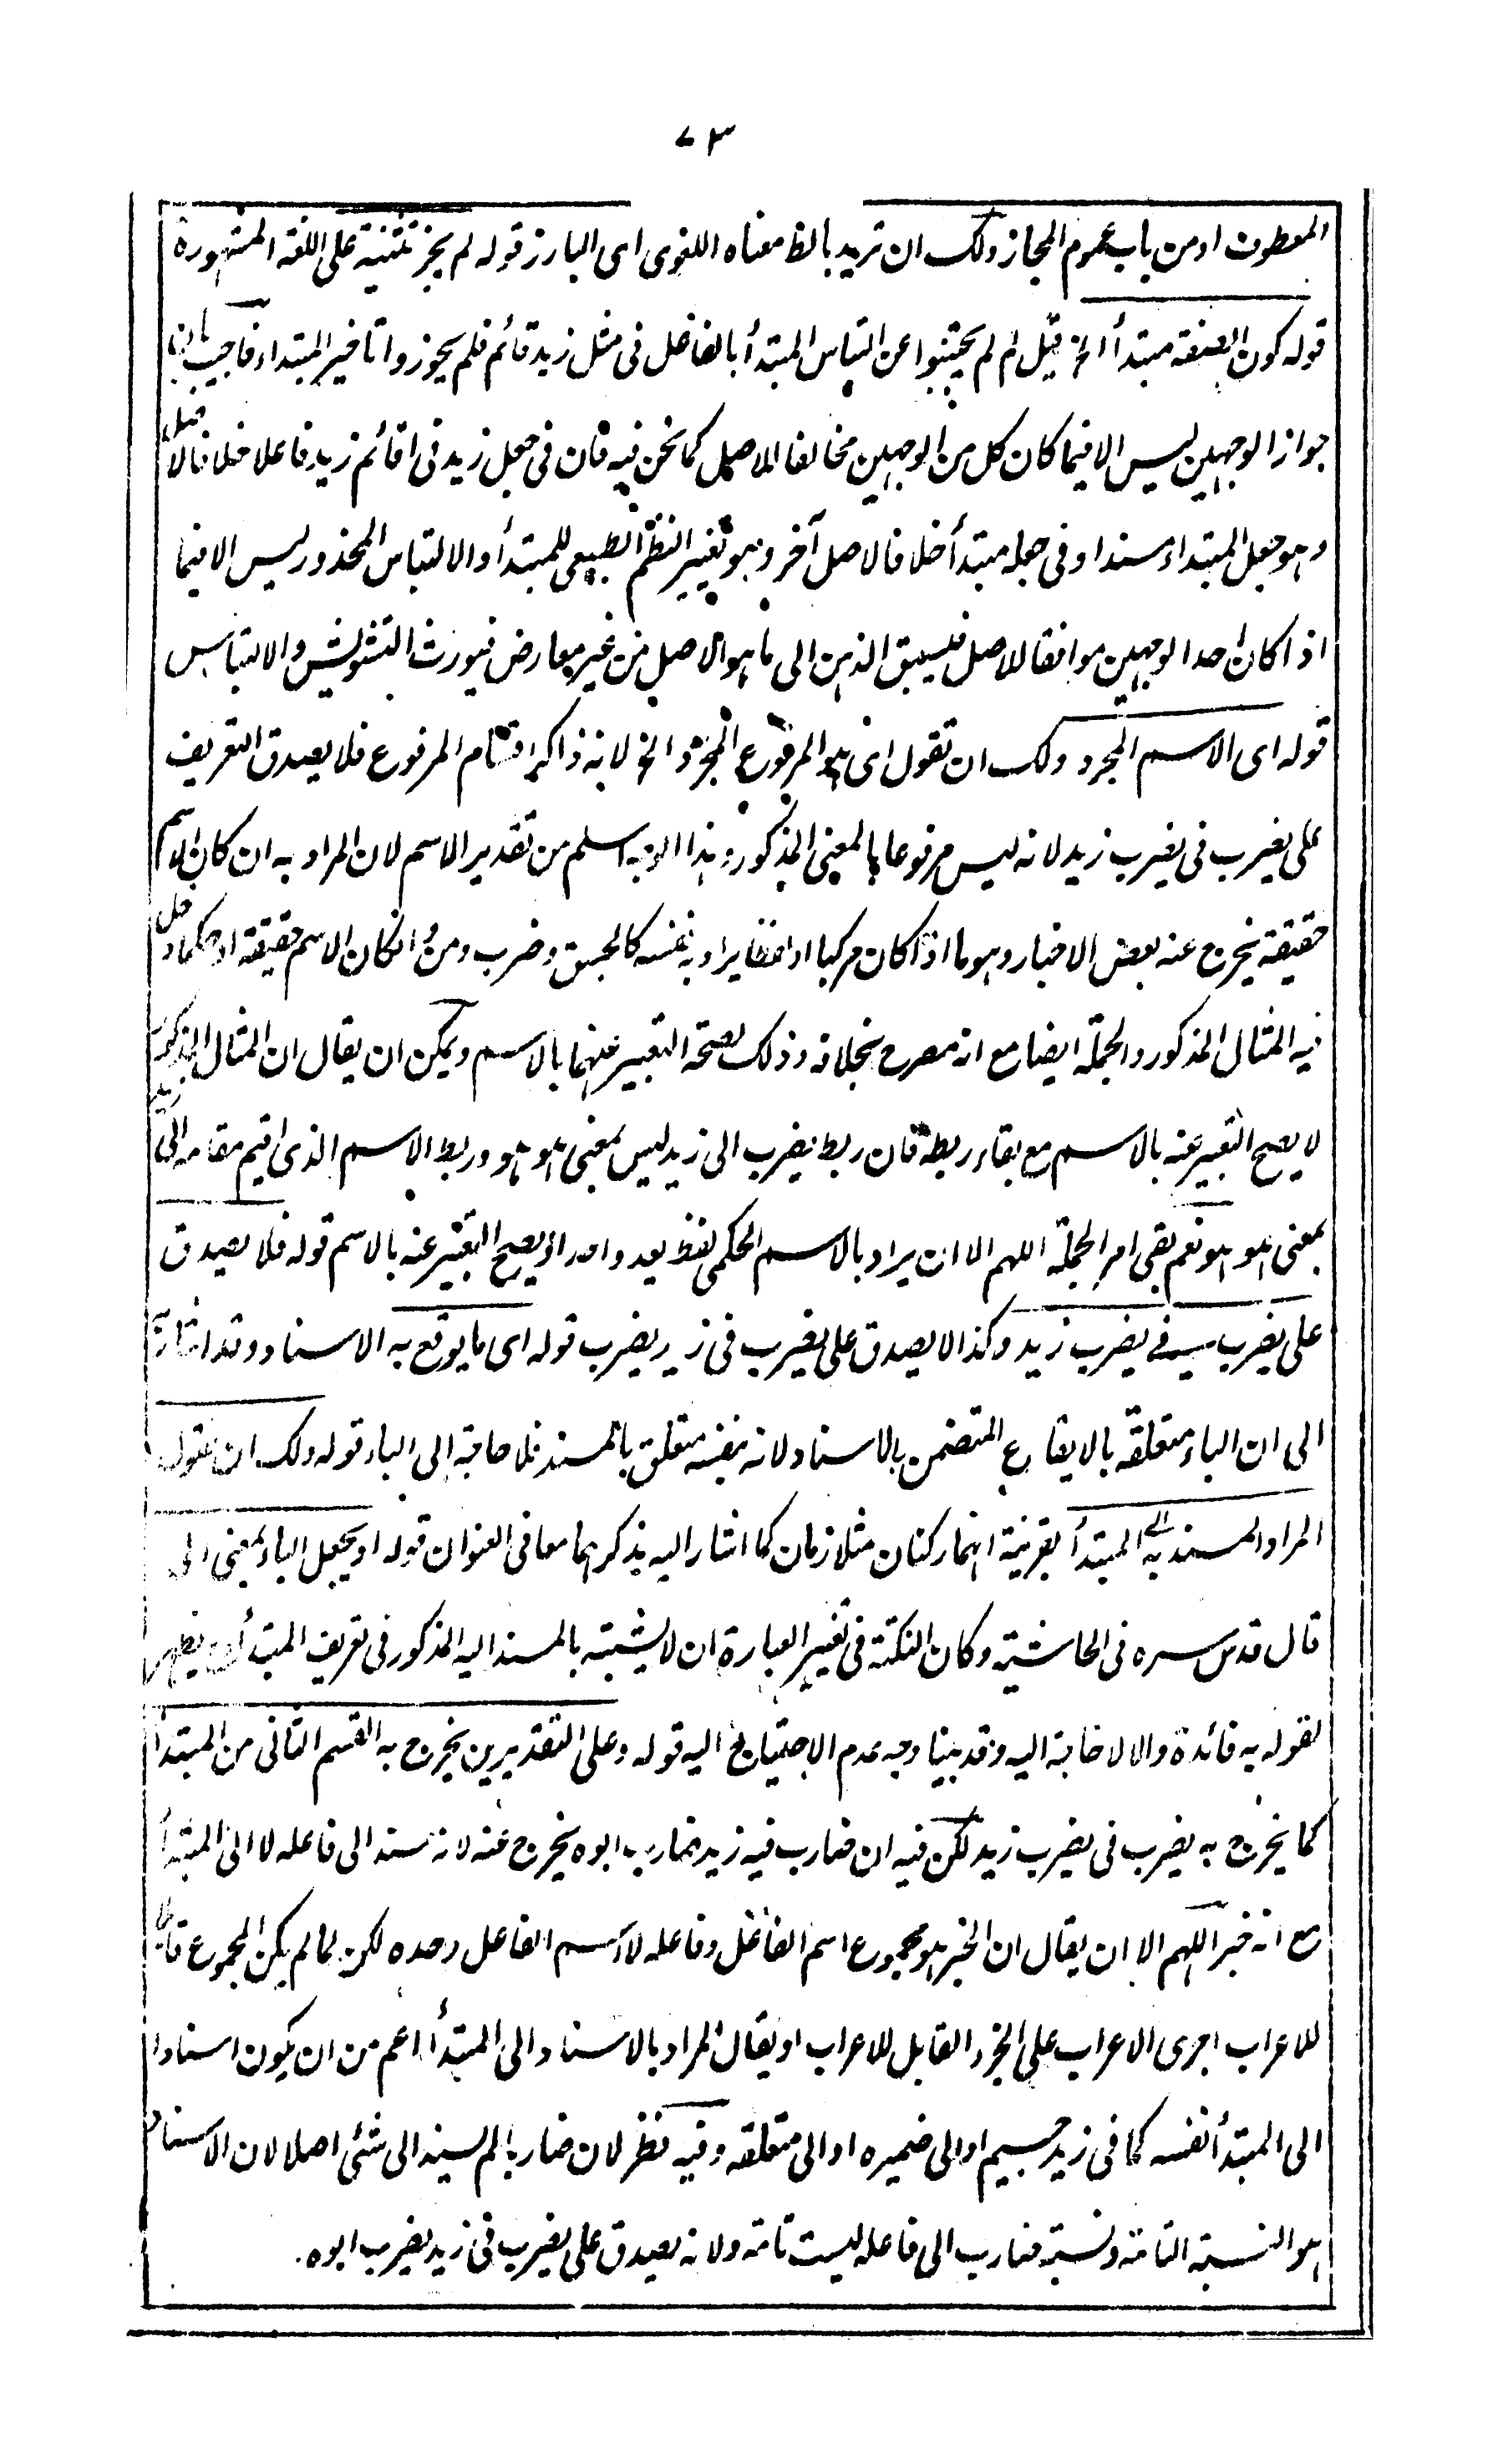 ٧٣
المعطوف او من باب عموم المجاز ولك ان تريد بالظ معناه اللغوى اى البارز قوله لم يجز تثنية على اللغة المشهورة
قوله كون الصفة مبتدأ الخ قيل لم لم يجتنبوا عن التباس المبتدأ بالفاعل فى مثل زيد قائم فلم يجوزوا تاخير المبتداء فاجيب بان
جواز الوجهين ليس الا فيما كان كل من الوجهين مخالفا للاصل كما نحن فيه فان فى جعل زيد فى اقائم زيد فاعلا خلافا لاصل
وهو جعل المبتداء مسندا وفى جعله مبتدأ خلافا لاصل آخر وهو تغيير النظم الطبيعى للمبتدأ والالتباس المحذور ليس الا فيما
اذا كان احد الوجهين موافقا للاصل فليسبق الذهن الى ما هو الاصل من غير معارض فيورث التشويش والالتباس
قوله اى الاسم المجرد ولك ان تقول اى هو المرفوع المجرد الخ لانه ذاكر اقسام المرفوع فلا يصدق التعريف
على يضرب فى يضرب زيد لانه ليس مرفوعا بالمعنى المذكور وهذا الوجه اسلم من تقدير الاسم لان المراد به ان كان الاسم
حقيقة يخرج عنه بعض الاخبار وهو ما اذا كان مركبا او لفظا يراد به نفسه كالجسق وضرب ومن وانكان الاسم حقيقة او حكما دخل
فيه المثال المذكور والجملة ايضا مع انه مصرح بخلافه وذلك لصحة التعبير عنهما بالاسم ويمكن ان يقال ان المثال المذكور
لا يصح التعبير عنه بالاسم مع بقاء ربطه فان ربط يضرب الى زيد ليس بمعنى هو هو وربط الاسم الذى اقيم مقامه الى زيد
بمعنى هو هو نعم بقى امر الجملة اللهم الا ان يراد بالاسم الحكمى لفظ يعد واحدا ويصح التعبير عنه بالاسم قوله فلا يصدق
على يضرب فى يضرب زيد وكذا لا يصدق على يضرب فى زيد يضرب قوله اى ما يوقع به الاسناد وقد اشار
الى ان الباء متعلقة بالايقاع المتضمن بالاسناد لانه بنفسه متعلق بالمسند فلا حاجة الى الباء قوله ولك ان تقول
المراد المسند به الى المبتدأ بقرينة انهما ركنان متلازمان كما اشار اليه بذكرهما معا فى العنوان قوله او يجعل الباء بمعنى الى
قال قدس سره فى الحاشية وكان النكتة فى تغيير العبارة ان لا يشتبه بالمسند اليه المذكور فى تعريف المبتدأ ان يظهر
لقوله به فائدة والا لا حاجة اليه وقد بينا وجه عدم الاحتياج اليه قوله وعلى التقديرين يخرج به القسم الثانى من المبتدأ
كما يخرج به يضرب فى يضرب زيد لكن فيه ان ضارب فيه زيد ضارب ابوه يخرج عنه لانه مسند الى فاعله لا الى المبتدأ
مع انه خبر اللهم الا ان يقال ان الخبر هو مجموع اسم الفاعل وفاعله لا اسم الفاعل وحده لكن لما لم يكن المجموع قابلا
للاعراب اجرى الاعراب على الجزء القابل للاعراب او يقال المراد بالاسناد الى المبتدأ اعم من ان يكون اسنادا
الى المبتدأ نفسه كما فى زيد جسيم او الى ضميره او الى متعلقه وفيه نظر لان ضاربا لم يسند الى شئى اصلا لان الاسناد
هو النسبة التامة ونسبة ضارب الى فاعله ليست تامة ولانه يصدق على يضرب فى زيد يضرب ابوه.